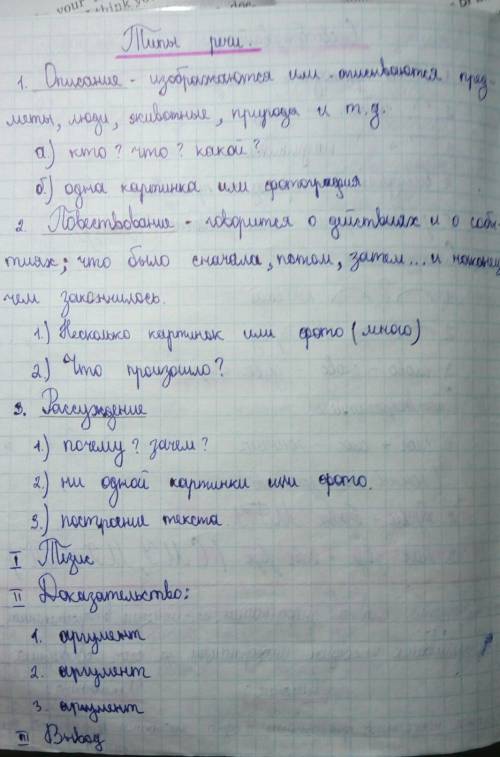 Типы речи.
1. Описание - изображаются или описываются пред-
меты, люди, животные, природа и т.д.
а) кто? что? какой?
б) одна картинка или фотография
2. Повествование - говорится о действиях и о собы-
тиях; что было сначала, потом, затем... и наконец
чем закончилось.
1.) Несколько картинок или фото (много)
2) Что произошло?
3. Рассуждение
1.) почему? зачем?
2.) ни одной картинки или фото.
3.) построение текста
I Тезис
II Доказательство:
1. аргумент
2. аргумент
3. аргумент
III Вывод